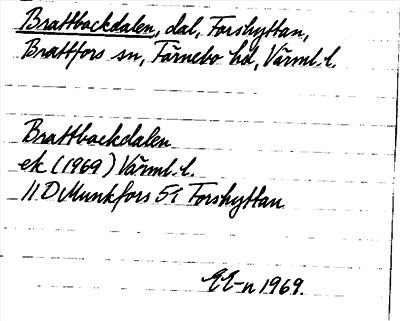 Brattbackdalen, dal, Forshyttan,
Brattfors sn, Färnebo hd, Värml. l.
Brattbackdalen
ek (1969) Värml. l.
11 D Munkfors 5i Forshyttan
EE-n 1969.